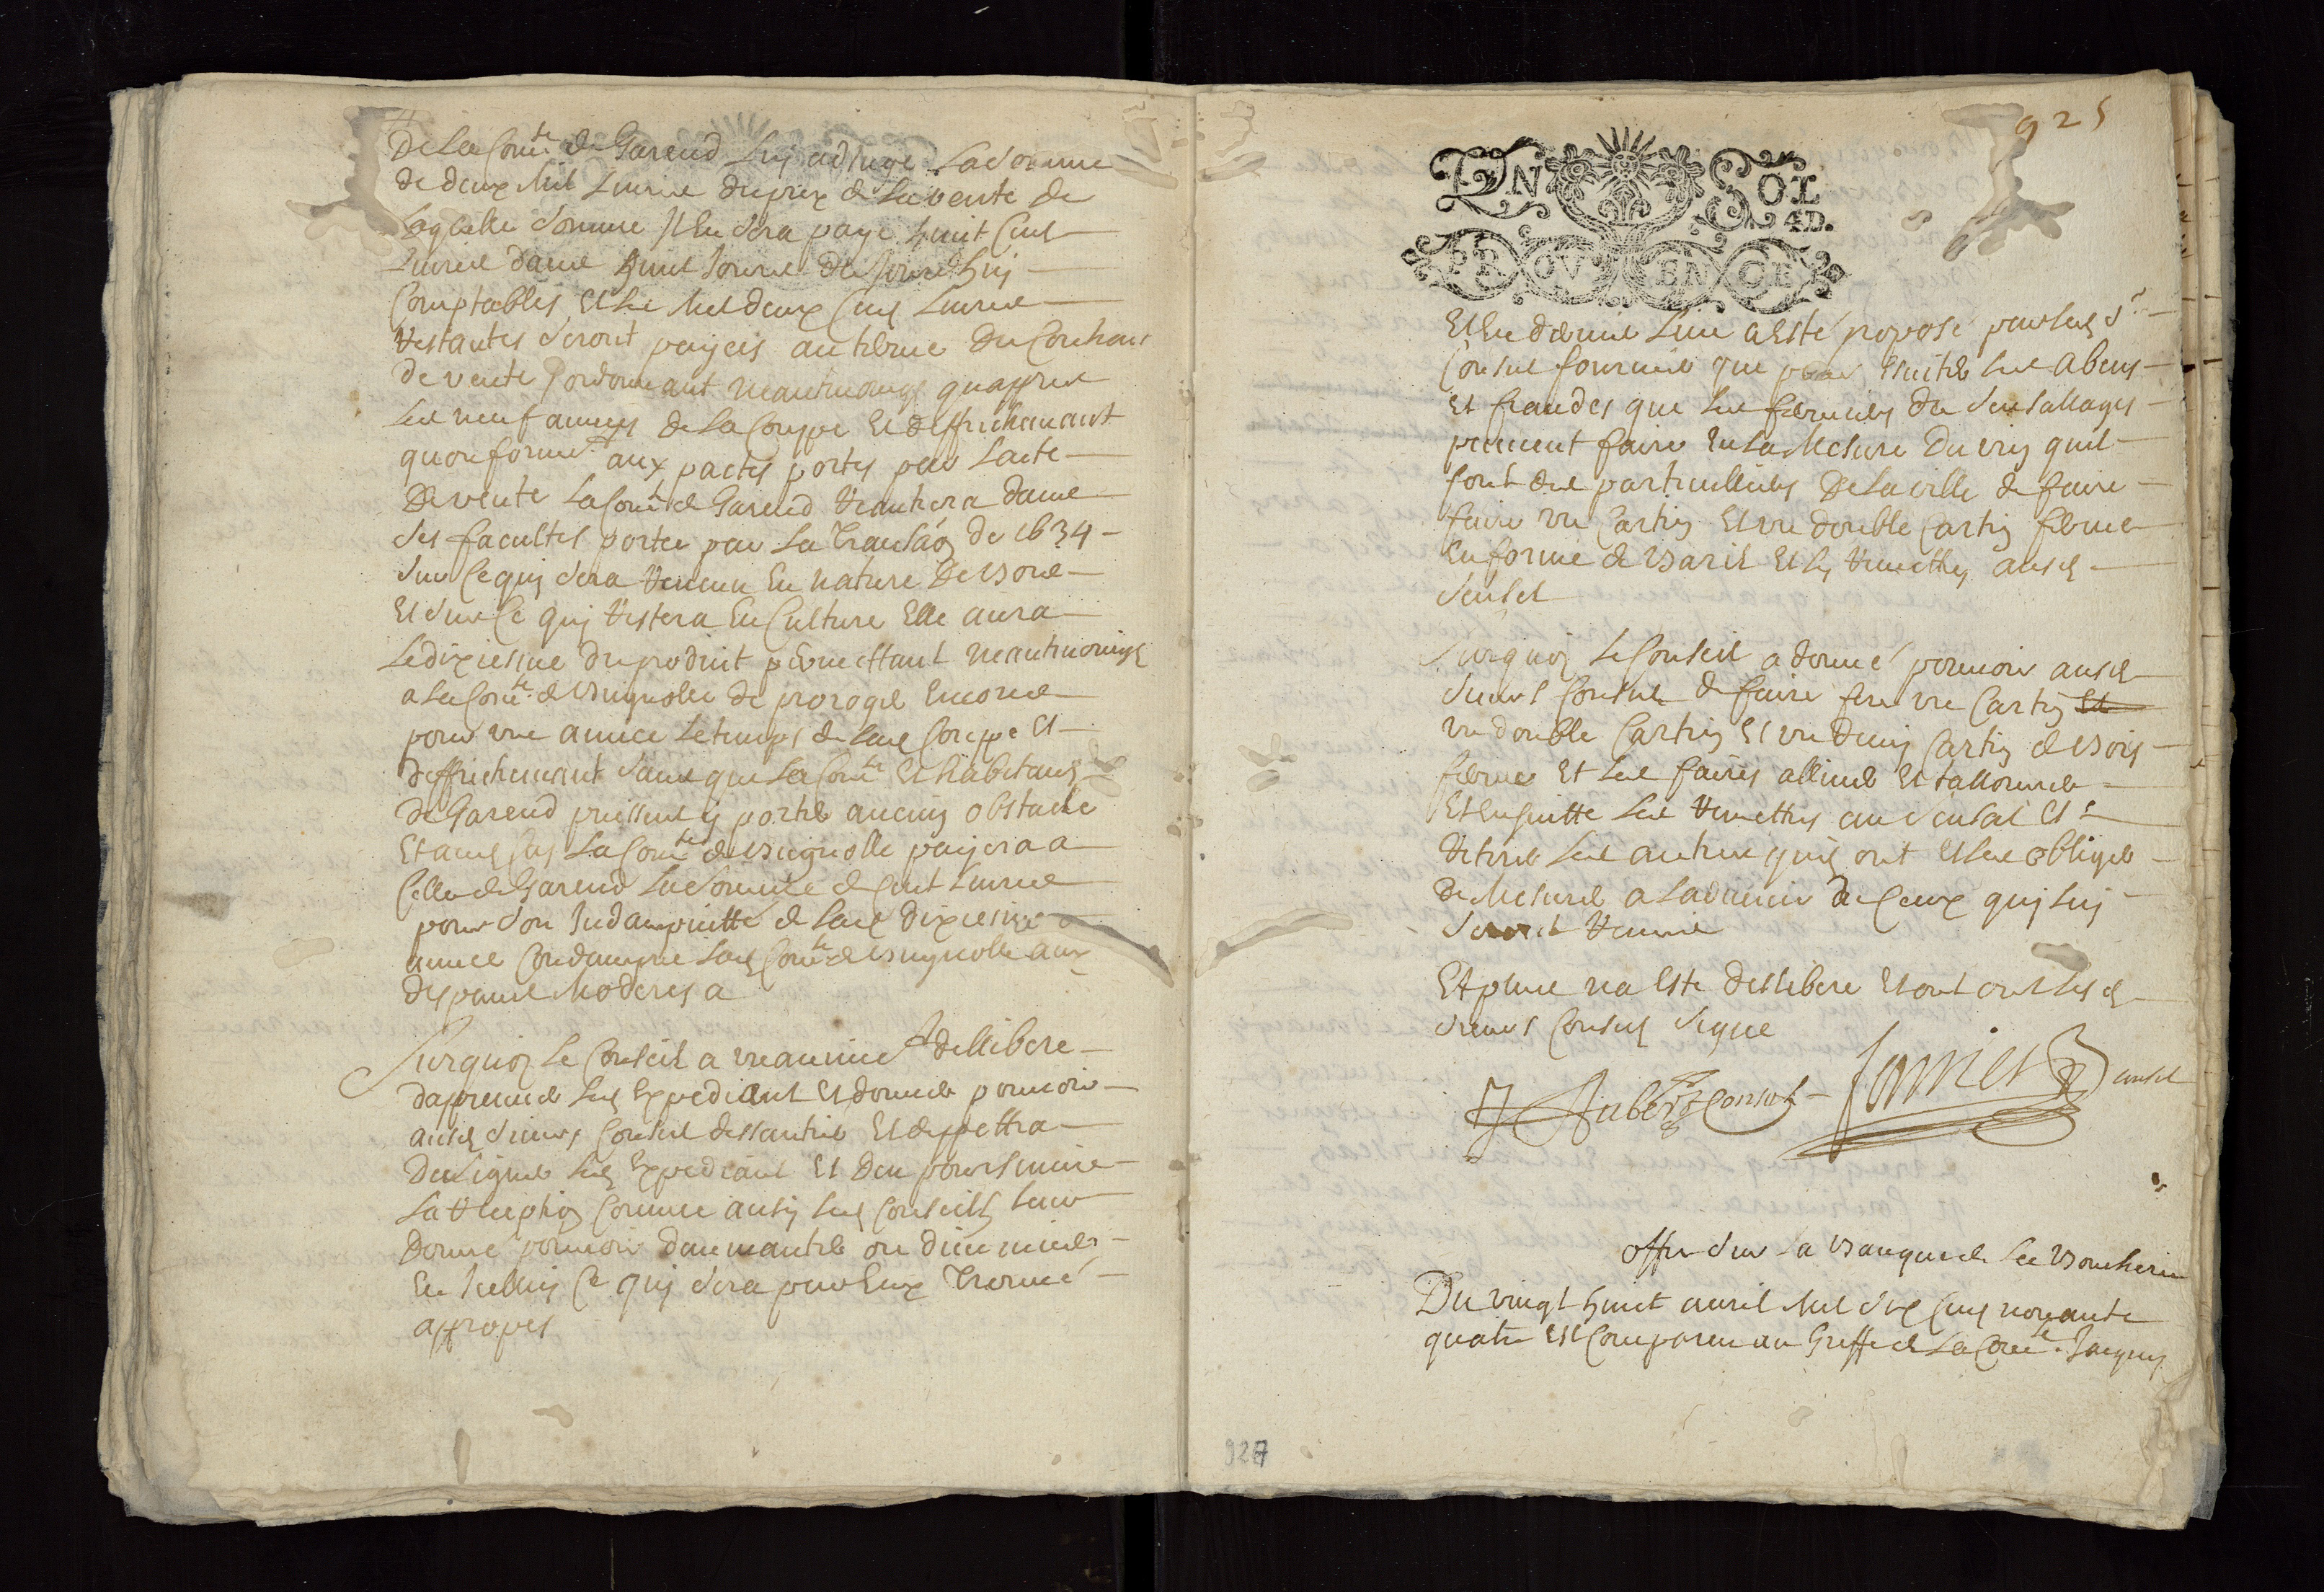 de la Com.te de Gareud luy adjuge la somme
de deux mil livres du prix de la vente de
laquelle somme il en sera paye huit cens
livres dans huit jours de jourdhuy
comptables et les mil deux cens livres
restantes seront payees au terme du contract
de vente ordonnant neantmoings quapres
les neuf annees de la couppe et deffrichemant
quonformem.t aux pactes portes par lacte
de vente la Com.te de Gareud rantrera dans
ses facultes portee par la transãon de 1634
sur ce quy sera veneu en nature de bois
et sur ce quy restera en culture elle aura
le dixiesme du produit permettant neantmoings
a la Com.te de brignolle de proroger encores
pour une annee le temps de lad couppe et
deffrichemant sans que la Com.te et habitans
de Gareud puissent y porter aucung obstacle
et a la Com.te de brignolle payera a
celle de Gareud la somme de cent livres
pour son indampnitté de lad dixiesme
annee condampne lad Com.te de brignolle aux
despans moderes a
Surquoy le conseil a unanimem.t dellibere
dapreuver led expediant et donner pouvoir
ausd sieurs consuls
de signer led expediant et den poursuivre
la reception comme aussy led conseil leur
donne pouvoir daumanter ou diminuer
en icelluy ce quy sera par eux treuvé
a propos
925
EN SOL
4D.
PROUVENCE
Et en dernier lieu a esté proposé par lesd s.rs
consuls fournier que pour esviter les abeus
et fraudes que les fermiers du sensallages
peuvent faire en la mesure du vin quil
font des particulliers de la ville de faire
faire un cartin et un double cartin ferme
en forme de baril et les remettre ausd
sensel
Surquoy le conseil a donné pouvoir ausd
sieurs consuls de faire fere un cartin et
un double cartin et un demy cartin de bois
ferme et les faires alliner et
et ensuitte les remettre au sensal et
retirer les autres quil ont et les obliger
de mesurer a ladvenir de ceux quy luy
seront remis
Et plus na este desliberé et ont lesd
sieurs consuls signe
J Aubert consul fornier consul
offre sur la banque de la boucherie
Du vingt huict avril mil six cens nonante
quatre est comparu au greffe de la Com.te Jacques
927